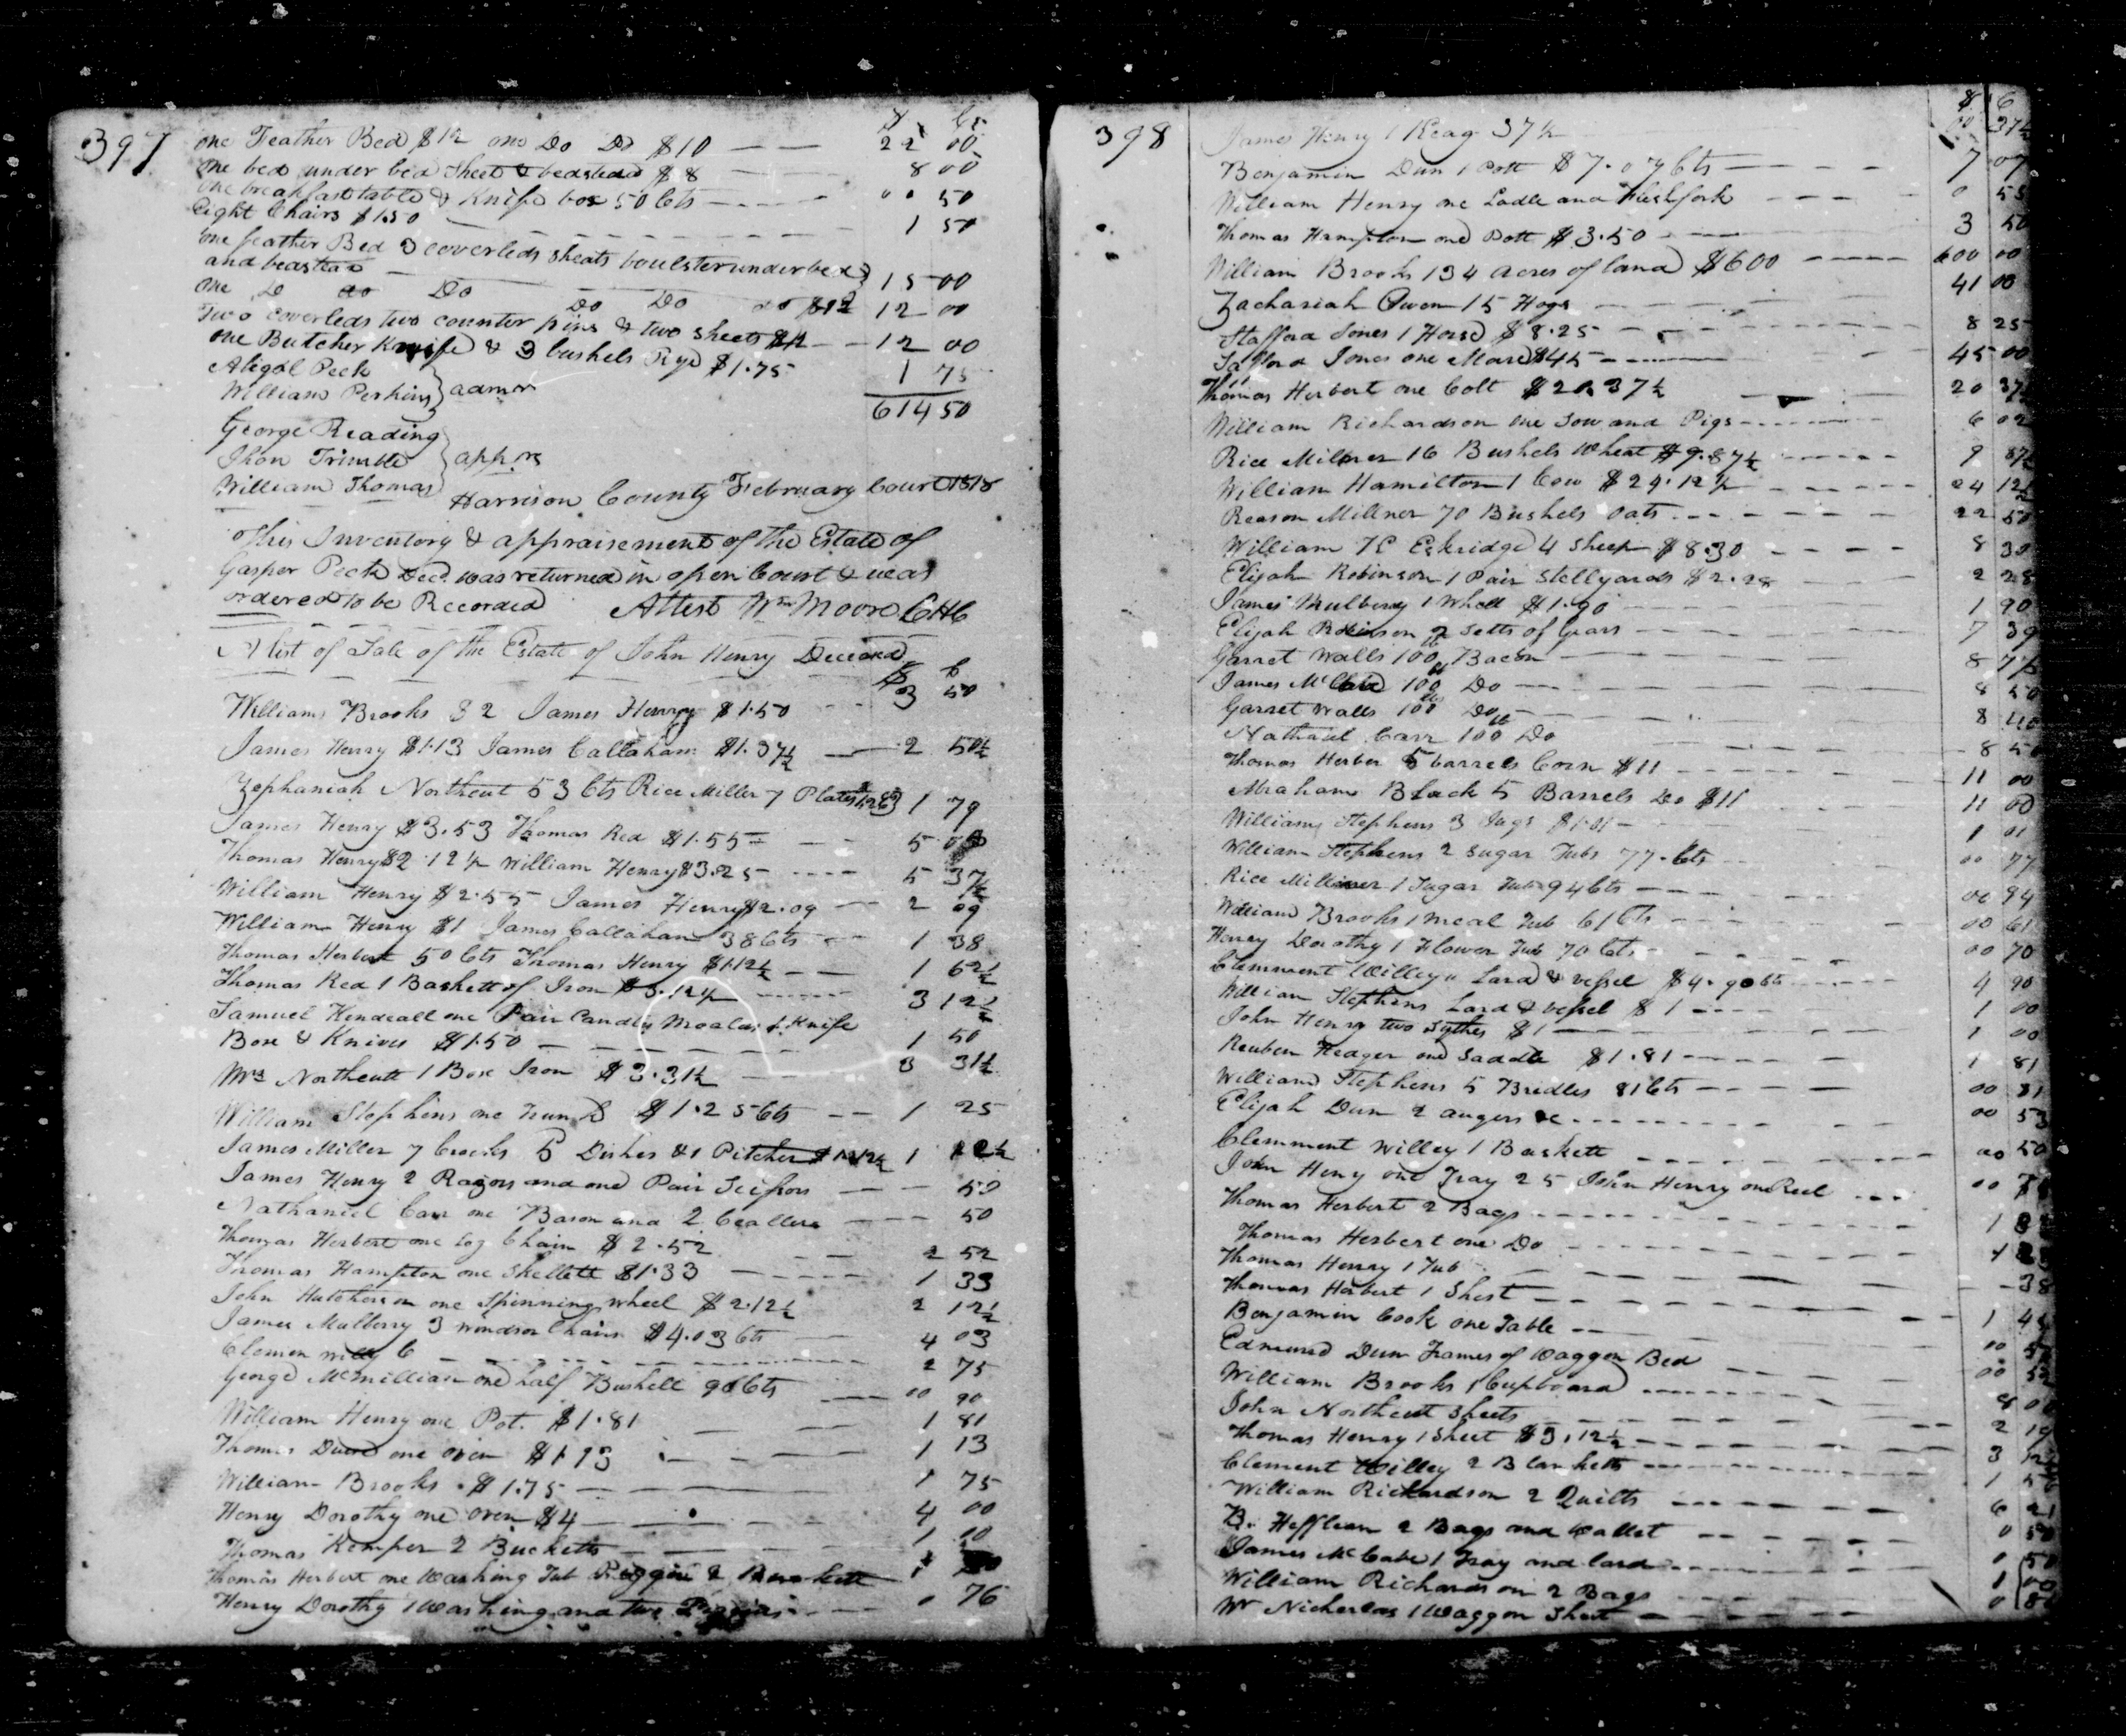 397
$ Cts
one Feather Bed $12 one Do Do $10 22 00
one bed under bed Sheet & bedstead $8 8 00
one breakfast table & Knife box 50 Cts 00 50
Eight Chairs $1.50 1 50
one feather Bed 3 coverleds sheats boulster under bed
and beastead 15 00
one Do do Do Do Do do $12 12 00
Two coverleds two counter pins & two sheets $12 12 00
one Butcher Knife & 3 bushels Rye $1.75 1 75
Abigal Peck
William Perkins } admr 614 50
George Reading
Jhon Trimble } apprs
William Thomas
Harrison County February Court 1818
This Inventory & appraisement of the Estate of
Gasper Peck Decd. was returned in open Court & was
ordered to be Recorded Attest Wm Moore CHC
A list of Sale of the Estate of John Henry Deceased
$ C
William Brooks $2 James Henry $1.50 3 50
James Henry $1.13 James Callaham $1.37½ 2 50½
Zephaniah Northcut 53 Cts Rice Miller 7 Plates 1 79
James Henry $3.53 Thomas Red $1.55 5
Thomas Henry $2.12½ William Henry $3.25 5 37½
William Henry $2.55 James Henry $2.09 2 09
William Henry $1 James Callahan 38 Cts 1 38
Thomas Herbert 50 Cts Thomas Henry $1.12½ 1 62½
Thomas Red 1 Baskett of Iron $3.12½ 3 12½
Samuel Kendeall one Pair Candle Moalds & Knife
Box & Knives $1.50 1 50
Mrs Northcutt 1 Box Iron $3.31½ 3 31½
William Stephens one $1.25 Cts 1 25
James Miller 7 5 Dishes & 1 Pitcher 1
James Henry 2 Razors and one Pair Scissors 50
Nathaniel Carr one Bason and 2 50
Thomas Herbert one Log Chain $2.52 2 52
Thomas Hampton one Skellett $1.33 1 33
John Hutcherson one Spinning wheel $2.12½ 2 12½
James Mulberry 3 Windsor Chairs $4.03 Cts 4 03
Clemen Willy 6 2 75
George McMillian one half Bushell 90 Cts 00 90
William Henry one Pot. $1.81 1 81
Thomas one oven $1.13 1 13
William Brooks $1.75 1 75
Henry Dorothy one Oven $4 4 00
Thomas Kemper 2 Bucketts 1 10
Thomas Herbert one Washing Tub Piggin &
Henry Dorothy 1 Washing and two 0 76
398
$ C
James Henry 1 Keag 37½ 00 37½
Benjamin Dun 1 Pott $7.07 Cts 7 07
William Henry one Ladle and Fleshfork 0 55
Thomas Hampton one Pott $3.50 3 50
William Brooks 134 acres of land $600 600 00
Zachariah Owen 15 Hogs 41 00
Stafford Jones 1 Horse $8.25 8 25
Stafford Jones one Mare $45 45 00
Thomas Herbert one Colt $20.37½ 20 37½
William Richardson one Sow and Pigs 6 02
Rice Millner 16 Bushels Wheat $9.87½ 9 87½
William Hamilton 1 Cow $24.12½ 24 12½
Reason Millner 70 Bushels oats 22 50
William Eskridge 4 Sheep $8.30 8 30
Elijah Robinson 1 Pair Stellyards $2.28 2 28
James Mulbery 1 Wheel $1.90 1 90
Elijah Robinson 2 Setts of Gears 7 39
Garret Walls 100 lb Bacon 8
James McCabe 100 Do 8 50
Garret Walls 100 Do 8 40
Nathaniel Carr 100 Do 8 50
Thomas Herber 5 barrels Corn $11 11 00
Abraham Black 5 Barrels Do $11 11 00
William Stephens 3 Jugs $1.01 1 01
William Stephens 2 Sugar Tubs 77. Cts 00 77
Rice Millner 1 Sugar Tub 94 Cts 00 94
William Brooks 1 meal Tub 61 Cts 00 61
Henry Dorothy 1 Flower Tub 70 Cts 00 70
Clemment Willey Lard & vessel $4.90 Cts 4 90
William Stephens Lard & vessel $1 1 00
John Henry two Sythes $1 1 00
Reuben Headger one Saddle $1.81 1 81
William Stephens 5 Bridles 81 Cts 00 81
Elijah Dun 2 augers &c 00 53
Clemment Willey 1 Baskett 00 50
John Heny one Tray 25 John Henry one Reel 00
Thomas Herbert 2 Bags 1
Thomas Herbert one Do
Thomas Henry 1 Tub 38
Thomas Herbert 1 Shest
Benjamin Cook one Table 1
Edmund Dun Frames of Waggon Bed 00
William Brooks 1 Cupboard 00
John Northcutt Sheets 8
Thomas Henry 1 Sheet $3.12½ 2
Clement Willey 2 Blanketts 3
William Richardson 2 Quilts 1
B. Hefflean 2 Bags and Wallet 6 21
James McCabe 1 Tray and lard 0 50
William Richardson 2 Bags 0 50
Wm Nicherlas 1 Waggon Sheet 1 00
0